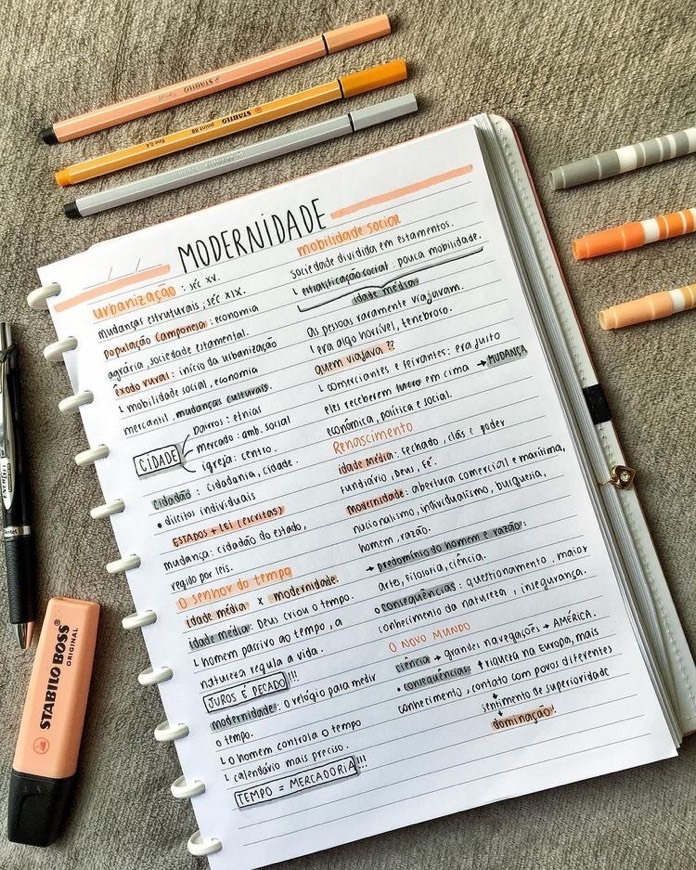 STABILO
STABILO point 88 fine 0,4
STABILO
MODERNIDADE
urbanização : séc XV.
mudanças estruturais, séc XIX.
População Camponesa : economia
agrária, sociedade estamental.
êxodo rural : início da urbanização
mobilidade social, economia
mercantil, mudanças culturais.
CIDADE
bairros : etnias
mercado : amb. social
igreja : centro.
Cidadão : cidadania, cidade.
• direitos individuais
ESTADOS + LEI (escritas)
mudança : cidadão do estado,
regido por leis.
O senhor do tempo
idade média x modernidade.
idade média : Deus criou o tempo.
homem passivo ao tempo, a
natureza regula a vida.
JUROS É PECADO!!!
modernidade : o relógio para medir
o tempo.
o homem controla o tempo
calendário mais preciso.
TEMPO = MERCADORIA!!!
mobilidade social
sociedade dividida em estamentos.
estratificação social, pouca mobilidade.
idade média
As pessoas raramente viajavam.
era algo horrível, tenebroso.
quem viajava ??
comerciantes e feirantes : era justo
eles receberem lucro em cima → MUDANÇA
econômica, política e social.
Renascimento
idade média : fechado, clãs e poder
fundiário, Deus, fé.
Modernidade : abertura comercial e marítima,
nacionalismo, individualismo, burguesia,
homem, razão.
→ predomínio do homem e razão :
arte, filosofia, ciência.
consequências : questionamento, maior
conhecimento da natureza, insegurança.
O NOVO MUNDO
ciência → grandes navegações → AMÉRICA.
• consequências : ↑ riqueza na Europa, mais
conhecimento, contato com povos diferentes
↓ sentimento de superioridade
dominação!
STABILO BOSS
ORIGINAL